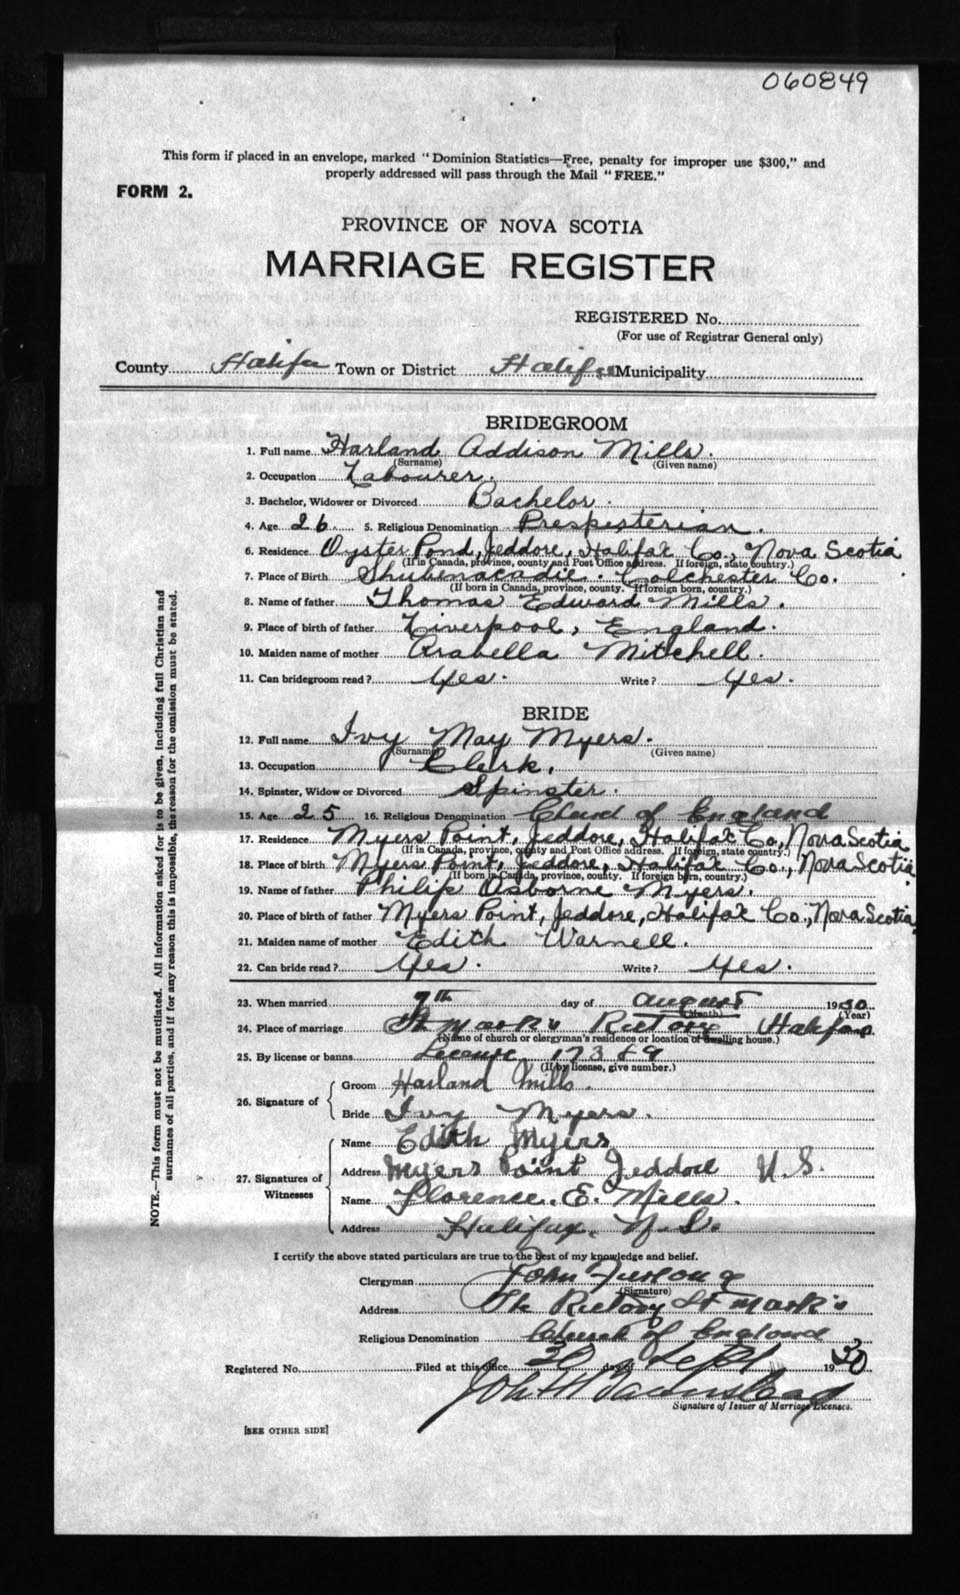 060849
This form if placed in an envelope, marked "Dominion Statistics—Free, penalty for improper use $300," and
properly addressed will pass through the Mail "FREE."
FORM 2.
PROVINCE OF NOVA SCOTIA
MARRIAGE REGISTER
REGISTERED No.
(For use of Registrar General only)
County Halifax Town or District Halifax Municipality
BRIDEGROOM
1. Full name Harland Addison Mills.
(Surname) (Given name)
2. Occupation Labourer.
3. Bachelor, Widower or Divorced Bachelor.
4. Age 26 5. Religious Denomination Prespesterian.
6. Residence Oyster Pond, Jeddore, Halifax Co., Nova Scotia
(If in Canada, province, county and Post Office address. If foreign, state country.)
7. Place of Birth Shubenacadie. Colchester Co.
(If born in Canada, province, county. If foreign born, country.)
8. Name of father Thomas Edward Mills.
9. Place of birth of father Liverpool, England.
10. Maiden name of mother Arabella Mitchell.
11. Can bridegroom read? Yes. Write? Yes.
BRIDE
12. Full name Ivy May Myers.
(Surname) (Given name)
13. Occupation Clerk.
14. Spinster, Widow or Divorced Spinster.
15. Age 25 16. Religious Denomination Church of England
17. Residence Myers Point, Jeddore, Halifax Co, Nova Scotia
(If in Canada, province, county and Post Office address. If foreign, state country.)
18. Place of birth Myers Point, Jeddore, Halifax Co., Nova Scotia
(If born in Canada, province, county. If foreign born, country.)
19. Name of father Philip Osborne Myers.
20. Place of birth of father Myers Point, Jeddore, Halifax Co., Nova Scotia.
21. Maiden name of mother Edith Warnell.
22. Can bride read? Yes. Write? Yes.
23. When married 7th day of August 1930
(Month) (Year)
24. Place of marriage St Mark's Rectory Halifax
(Name of church or clergyman's residence or location of dwelling house.)
25. By license or banns License 17389
(If by license, give number.)
26. Signature of
Groom Harland Mills.
Bride Ivy Myers.
27. Signatures of Witnesses
Name Edith Myers
Address Myers Point Jeddore N.S.
Name Florence. E. Mills.
Address Halifax, N.S.
I certify the above stated particulars are true to the best of my knowledge and belief.
Clergyman John Furlong
(Signature)
Address The Rectory St Mark's
Religious Denomination Church of England
Registered No. Filed at this office 30 day of Sept 1930
Signature of Issuer of Marriage Licenses.
[SEE OTHER SIDE]
NOTE.—This form must not be mutilated. All information asked for is to be given, including full Christian and
surnames of all parties, and if for any reason this is impossible, the reason for the omission must be stated.